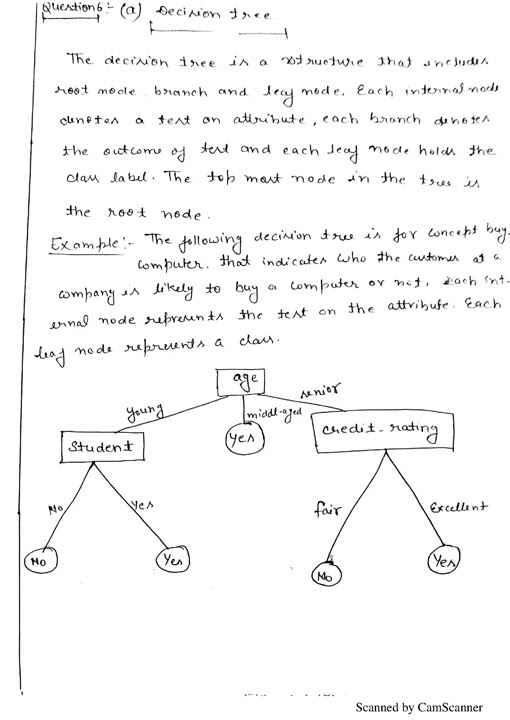 Question 6:- (a) Decision tree
The decision tree is a structure that includes
root node, branch and leaf node. Each internal node
denotes a test on attribute, each branch denotes
the outcome of test and each leaf node holds the
class label. The top most node in the tree is
the root node.
Example:- The following decision tree is for concept buy.
computer, that indicates who the customer at a
company is likely to buy a computer or not, Each int-
ernal node represents the test on the attribute. Each
leaf node represents a class.
age
young
middl-aged
senior
Student
Yes
credit-rating
No
Yes
fair
Excellent
No
Yes
No
Yes
Scanned by CamScanner